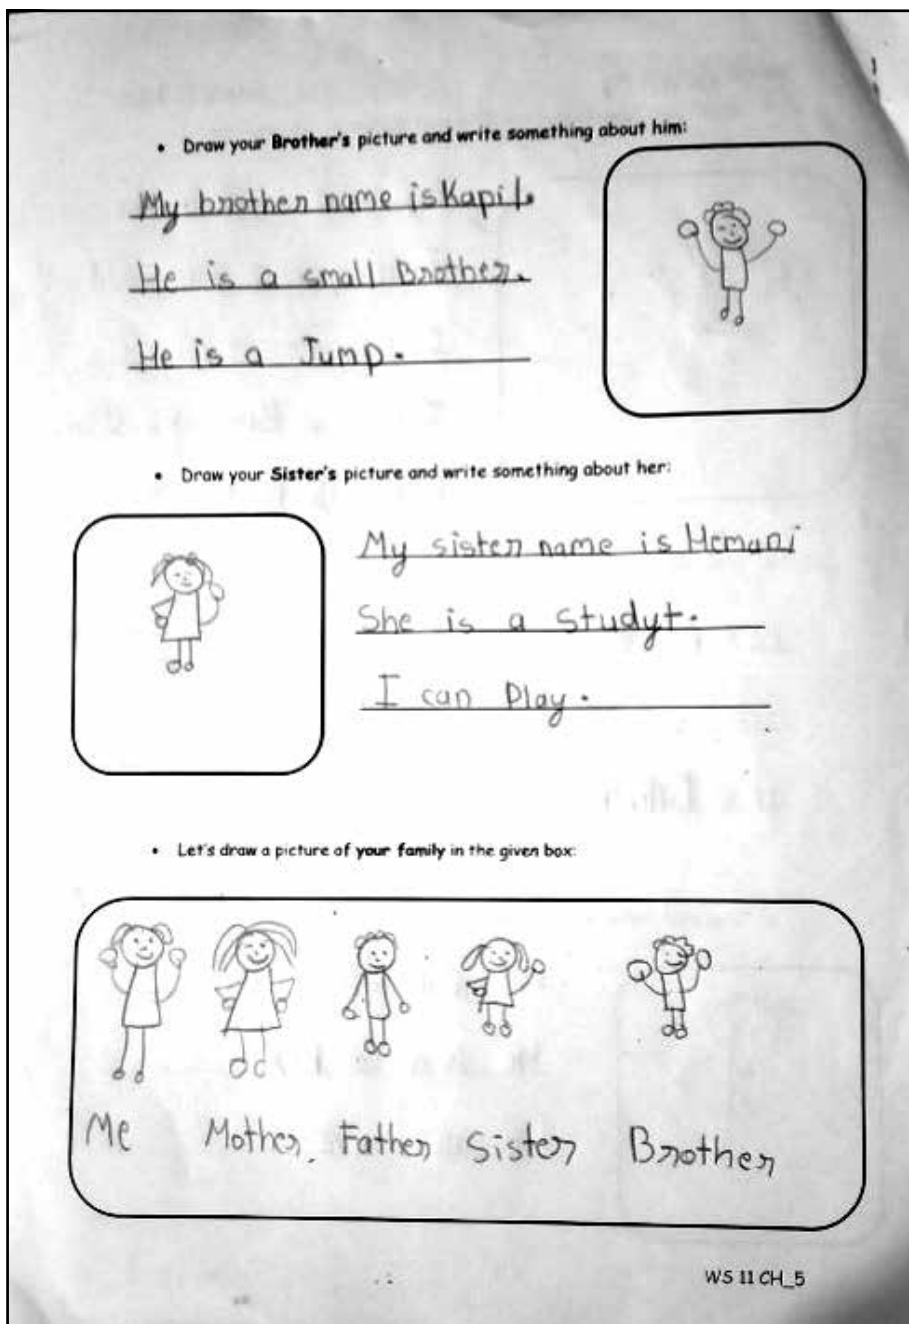 • Draw your Brother's picture and write something about him:
My brother name is Kapil.
He is a small Brother.
He is a Jump.
• Draw your Sister's picture and write something about her:
My sister name is Hemani
She is a studyt.
I can Play.
• Let's draw a picture of your family in the given box:
Me Mother, Father Sister Brother
WS 11 CH_5